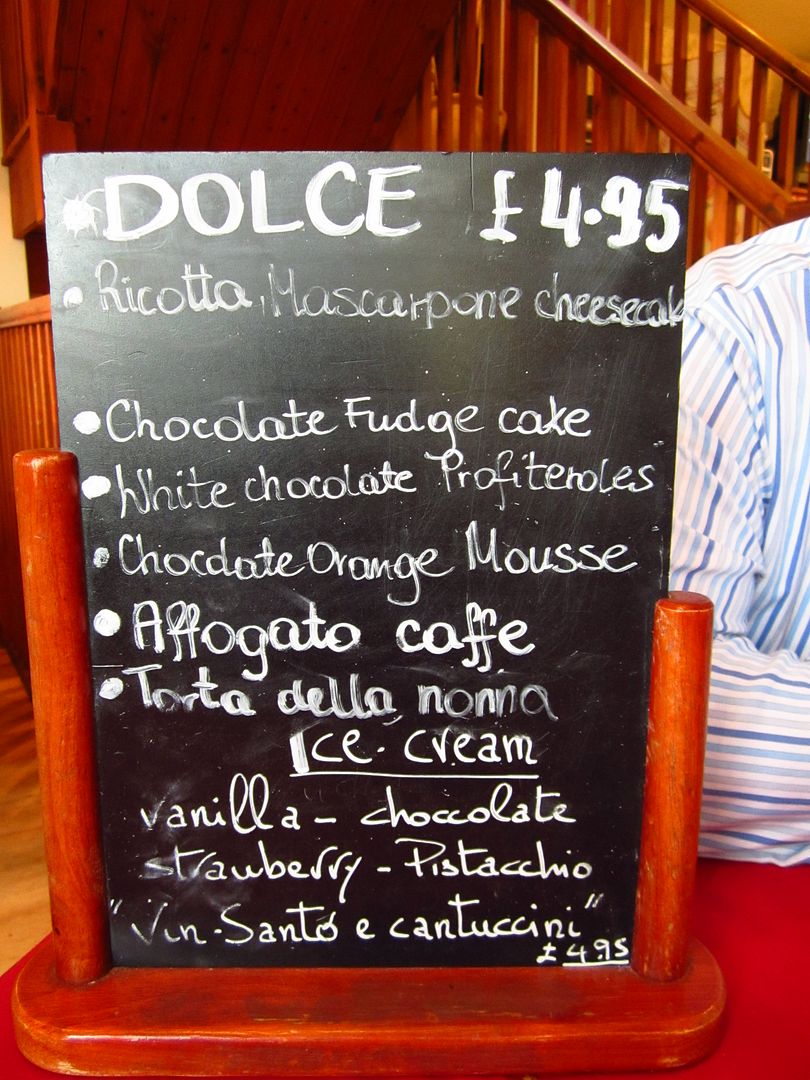 DOLCE £4.95
Ricotta, Mascarpone cheesecak
Chocolate Fudge cake
White chocolate Profiteroles
Chocolate Orange Mousse
Affogato caffe
Torta della nonna
Ice. cream
vanilla - choccolate
strawberry - Pistacchio
"Vin. Santo e cantuccini"
£4.95